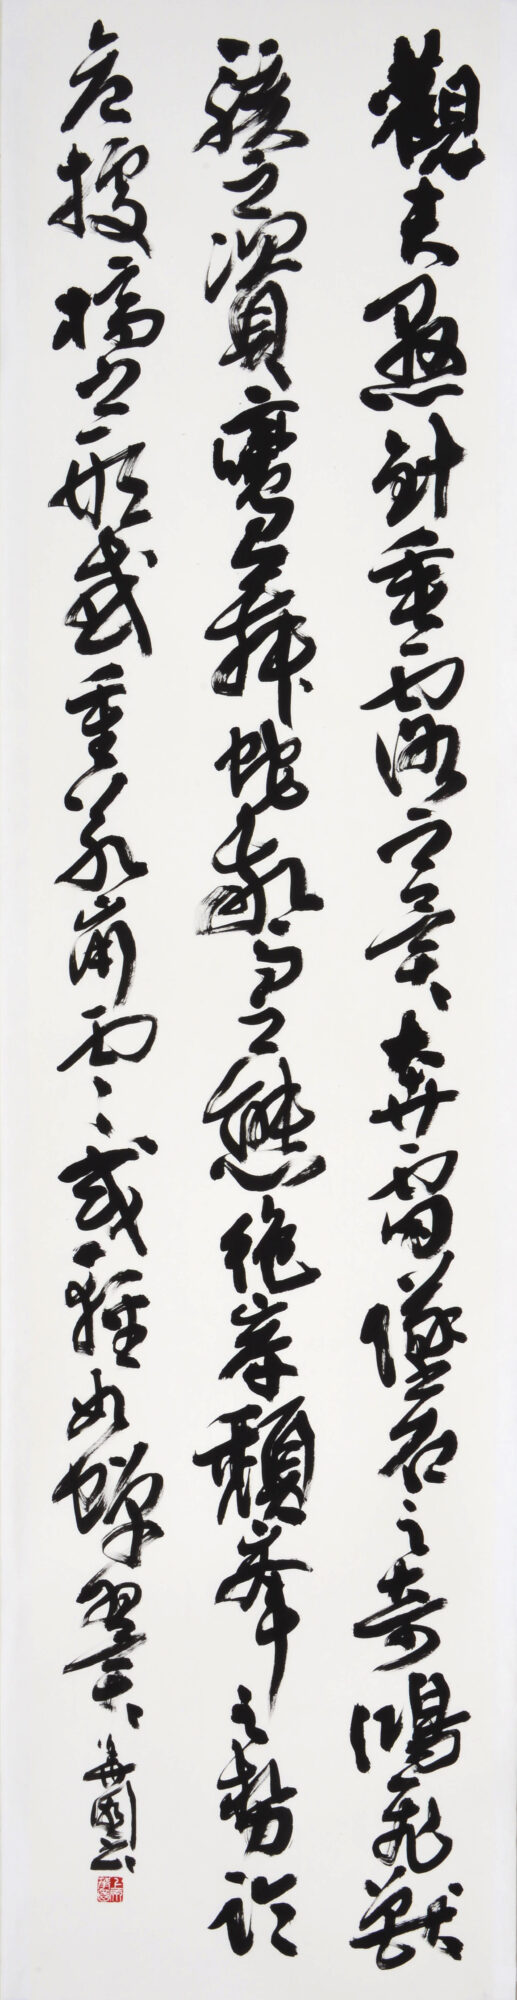 觀夫懸針垂露之異奔雷墜石之奇鴻飛獸
駭之資鸞舞蛇驚之態絶岸頽峯之勢臨
危據槁之形或重若崩雲或輕如蟬翼